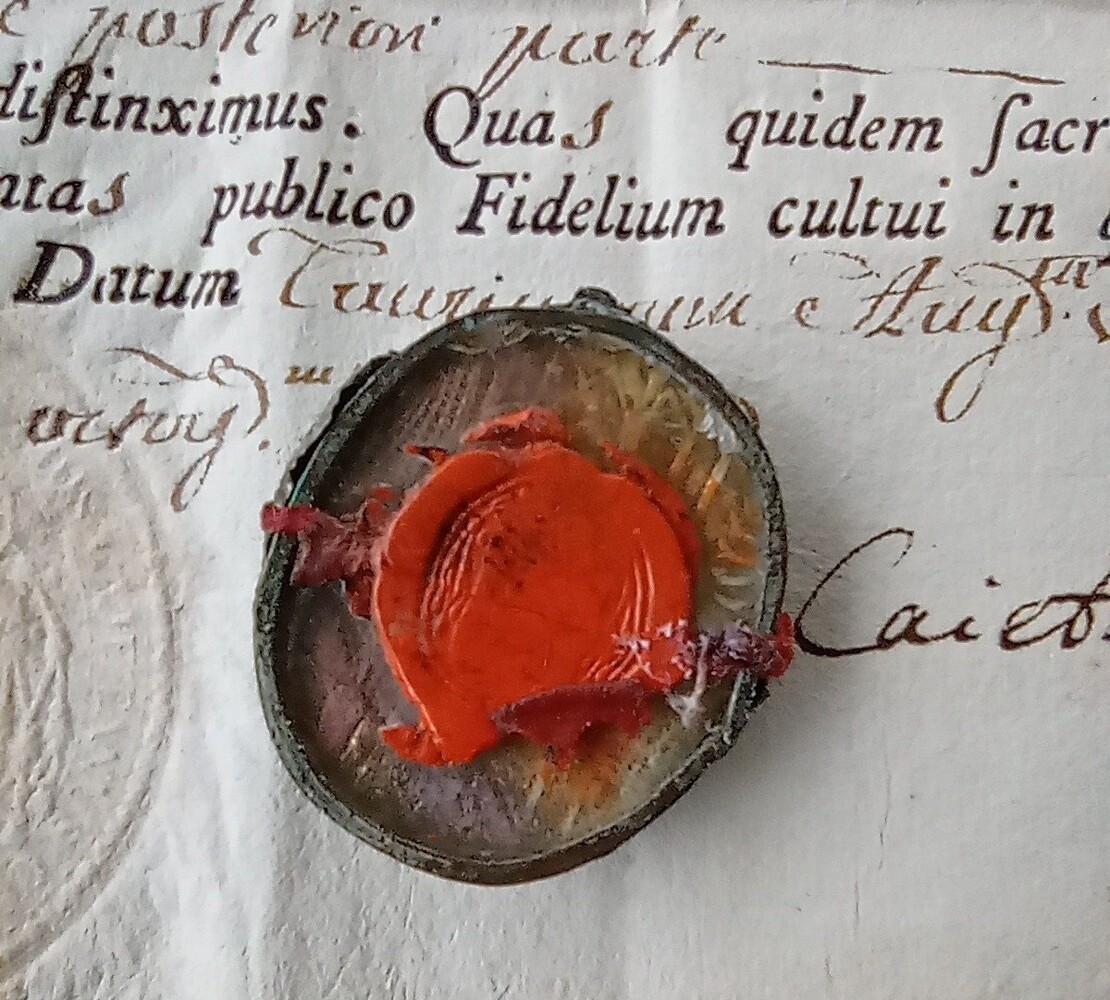 e posteriori parte
diſtinximus. Quas quidem ſacr
atas publico Fidelium cultui in
Datum Aug
Caiet